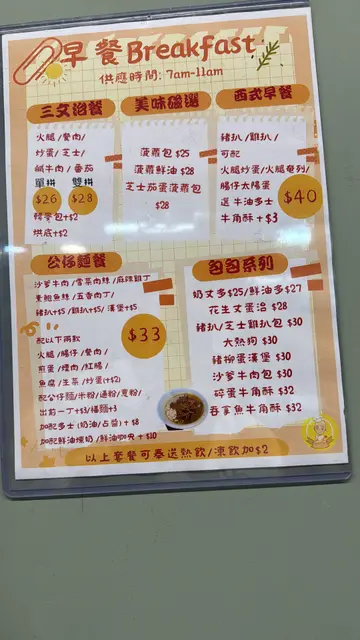 早餐 Breakfast
供應時間: 7am-11am
三文治餐
火腿/餐肉/
炒蛋/芝士/
鹹牛肉/番茄
單拼 雙拼
$26 $28
包+$2
烘底+$2
美味編選
菠蘿包 $25
菠蘿鮮油 $28
芝士茄蛋菠蘿包
$28
西式早餐
豬扒/雞扒/
可配
火腿炒蛋/火腿奄列/
腸仔太陽蛋
選牛油多士
牛角酥+$3
$40
公仔麵餐
沙爹牛肉/雪菜肉絲/麻辣雞丁
素鮑魚絲/五香肉丁/
豬扒+$5/雞扒+$5/漢堡+$5
配以下兩款
火腿/腸仔/餐肉/
煎蛋/煙肉/紅腸/
魚腐/生菜/炒蛋(+$2)
配公仔麵/米粉/通粉/意粉/
出前一丁+$3/福麵+3
加配多士(奶油/占醬)+$8
加配鮮油燉奶/鮮油咖央+$10
$33
包包系列
奶丈多$25/鮮油多$27
花生丈蛋治 $28
豬扒/芝士雞扒包 $30
大熱狗 $30
豬柳蛋漢堡 $30
沙爹牛肉包 $30
碎蛋牛角酥 $32
吞拿魚牛角酥 $32
以上套餐可奉送熱飲/凍飲加$2